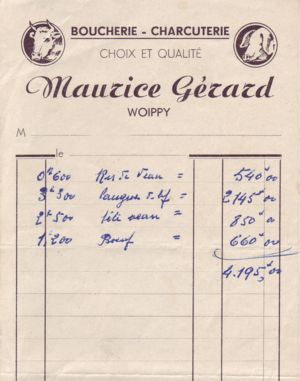 BOUCHERIE - CHARCUTERIE
CHOIX ET QUALITÉ
Maurice Gérard
WOIPPY
M
le
0k600 Ris de veau = 540f00
3k300 langues = 2145f00
2k500 tête veau = 850f00
1,200 Boeuf = 660f00
4.195,f00